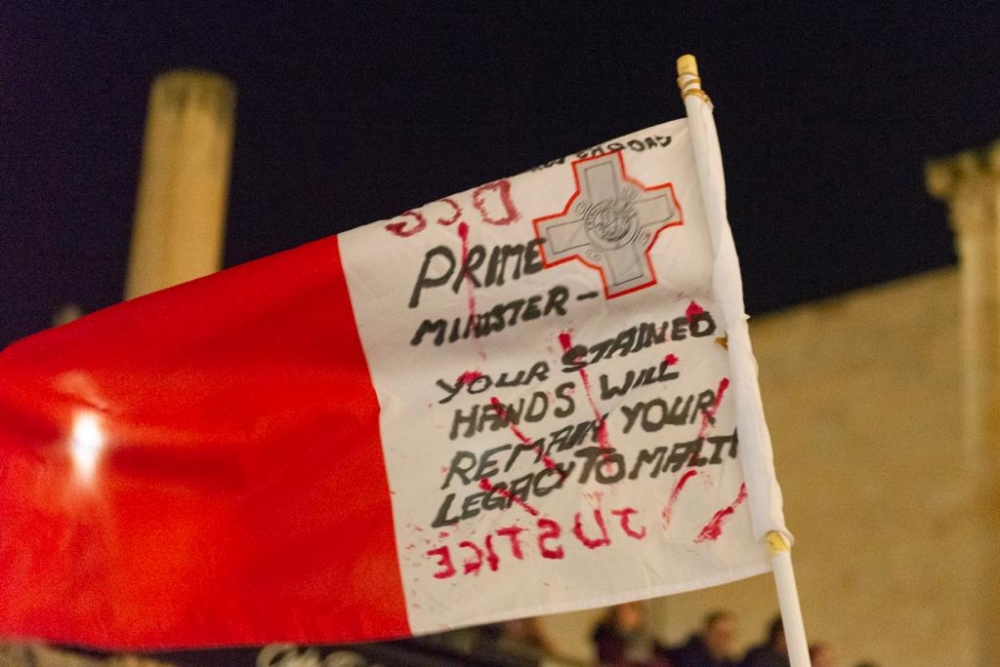 DCG
PRIME
MINISTER –
YOUR STAINED
HANDS WILL
REMAIN YOUR
LEGACY TO MALTA
JUSTICE